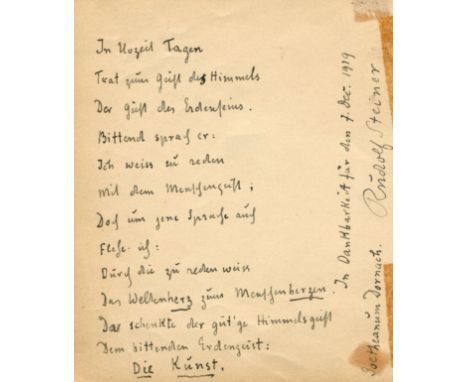 In Urzeit Tagen
Trat zum Geist des Himmels
Der Geist des Erdenseins.
Bittend sprach er:
Ich weiss zu reden
Mit dem Menschengeist;
Doch um jene Sprache auch
Flehe ich:
Durch die zu reden weiss
Das Weltenherz zum Menschenherzen.
Da schenkte der güt'ge Himmelsgeist
Dem bittenden Erdengeist:
Die Kunst.
In Dankbarkeit für den 7. Dec. 1919
Goetheanum Dornach. Rudolf Steiner